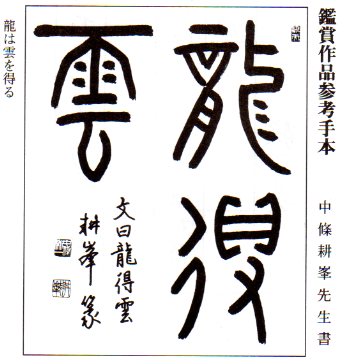 鑑賞作品参考手本
中條耕峯先生書
龍得
雲
文曰龍得雲
耕峯篆
龍は雲を得る